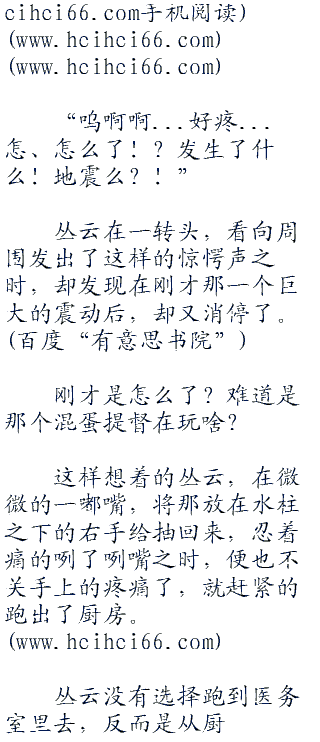 cihci66.com手机阅读)
(www.hcihci66.com)
(www.hcihci66.com)
“呜啊啊...好疼...
怎、怎么了！？发生了什
么！地震么？！”
丛云在一转头，看向周
围发出了这样的惊愕声之
时，却发现在刚才那一个巨
大的震动后，却又消停了。
(百度“有意思书院”)
刚才是怎么了？难道是
那个混蛋提督在玩啥？
这样想着的丛云，在微
微的一嘟嘴，将那放在水柱
之下的右手给抽回来，忍着
痛的咧了咧嘴之时，便也不
关手上的疼痛了，就赶紧的
跑出了厨房。
(www.hcihci66.com)
丛云没有选择跑到医务
室里去，反而是从厨